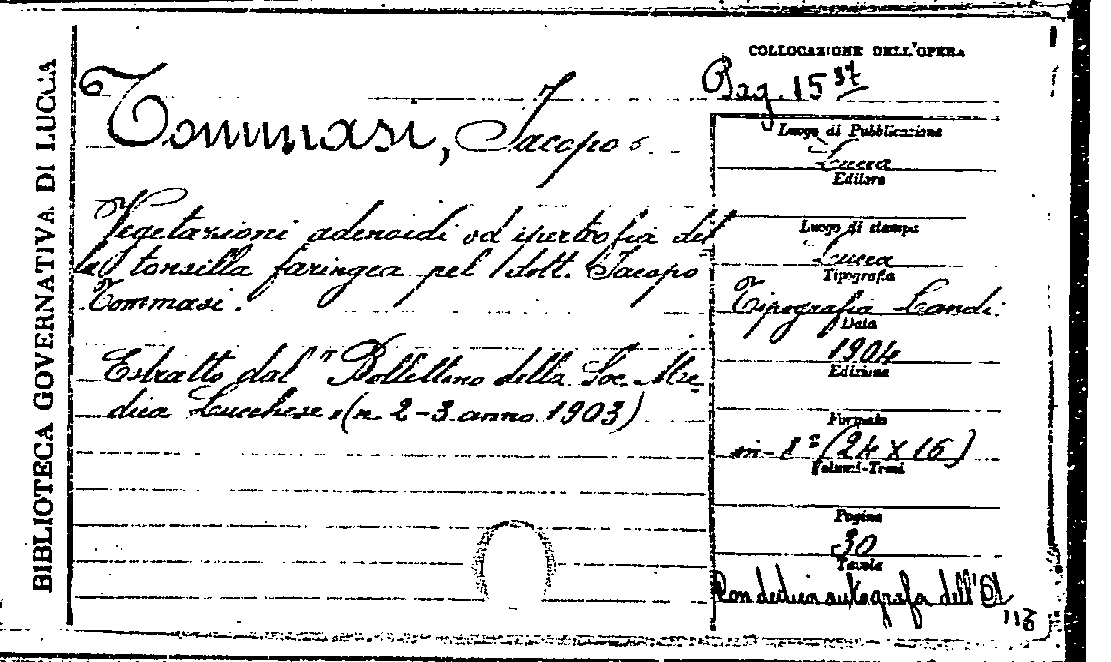 BIBLIOTECA GOVERNATIVA DI LUCCA
Tommasi, Jacopo
Vegetazioni adenoidi ed ipertrofia del
la tonsilla faringea pel dott. Jacopo
Tommasi.
Estratto dal "Bollettino della Soc. Me
dica Lucchese" (n. 2-3 anno 1903)
COLLOCAZIONE DELL'OPERA
Pag. 15 37
Luogo di Pubblicazione
Lucca
Editore
Luogo di stampa
Lucca
Tipografia
Tipografia Landi.
Data
1904
Edizione
Formato
in-8° (24 x 16)
Volumi-Tomi
Pagine
30
Tavole
Con dedica autografa dell'A